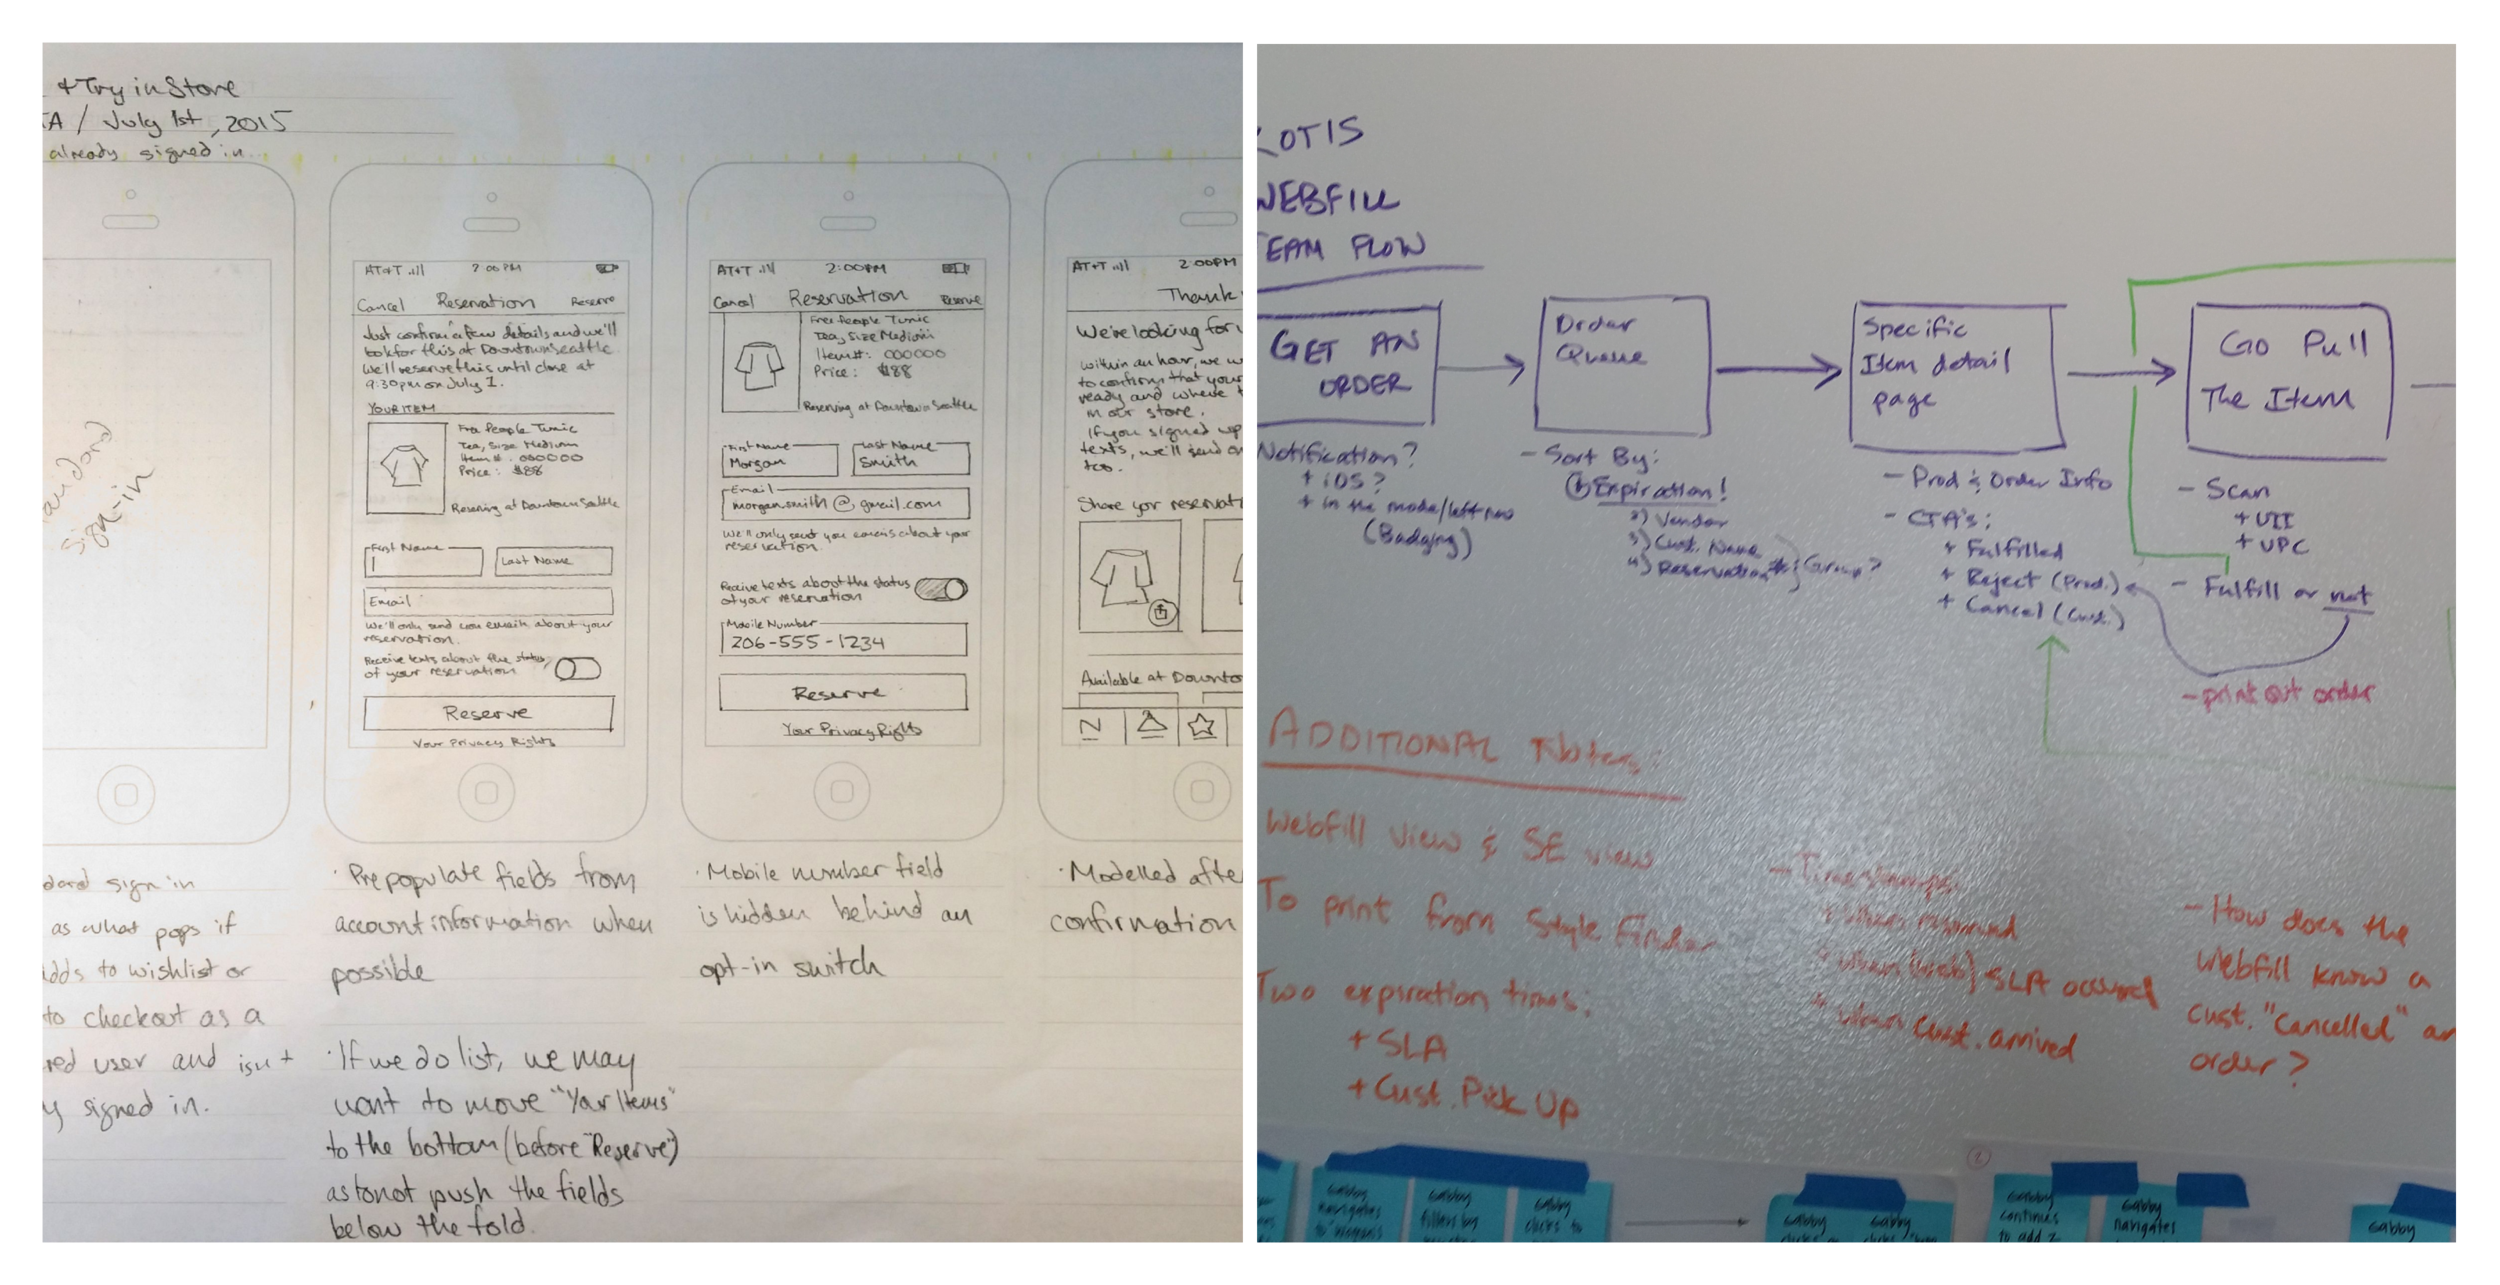 + Try in Store
TA / July 1st, 2015
already signed in...
sign-in
AT+T
7:00 PM
Cancel Reservation Reserve
Just confirm a few details and we'll
look for this at Downtown Seattle
We'll reserve this until close at
9:30pm on July 1.
YOUR ITEM
Free People Tunic
Tea, Size Medium
Item #: 000000
Price: $88
Reserving at Downtown Seattle
First Name
Last Name
Email
We'll only send you emails about your
reservation.
Receive texts about the status
of your reservation
Reserve
Your Privacy Rights
AT+T
2:00PM
Cancel Reservation Reserve
Free People Tunic
Tea, Size Medium
Item#: 000000
Price: $88
Reserving at Downtown Seattle
First Name
Morgan
Last Name
Smith
Email
morgan.smith@gmail.com
We'll only send you emails about your
reservation.
Receive texts about the status
of your reservation
Mobile Number
206-555-1234
Reserve
Your Privacy Rights
AT+T
2:00PM
Thank
We're looking for
within an hour, we w
to confirm that your
ready and where
in our store.
If you signed up
texts, we'll send
too.
Share your reservati
Available at Downto
N
dard sign in
as what pops if
adds to wishlist or
to checkout as a
red user and isn't
y signed in.
· Prepopulate fields from
account information when
possible
· If we do list, we may
want to move "Your Items"
to the bottom (before "Reserve")
as to not push the fields
below the fold.
· Mobile number field
is hidden behind an
opt-in switch
· Modelled afte
confirmation
KOTIS
WEBFILL
TEAM FLOW
GET AN
ORDER
Notification?
+ iOS?
+ in the mode/left nav
(Badging)
Order
Queue
- Sort By:
1) Expiration!
2) Vendor
3) Cust. Name
4) Reservation # Group?
Specific
Item detail
page
- Prod & Order Info
- CTA's:
+ Fulfilled
+ Reject (Prod.)
+ Cancel (Cust.)
Go Pull
The Item
- Scan
+ UII
+ UPC
- Fulfill or not
- print out order
ADDITIONAL Notes:
Webfill view & SE view
To print from Style Finder
Two expiration times:
+ SLA
+ Cust. Pick Up
- Timestamps:
* when reserved
* when (web) SLA occured
* when cust. arrived
- How does the
Webfill know a
cust. "Cancelled" an
order?
2
Gabby
navigates
to women's
Gabby
filters by
Gabby
clicks to
Gabby
Gabby
Gabby
continues
to add 2
Gabby
navigates
Gabby